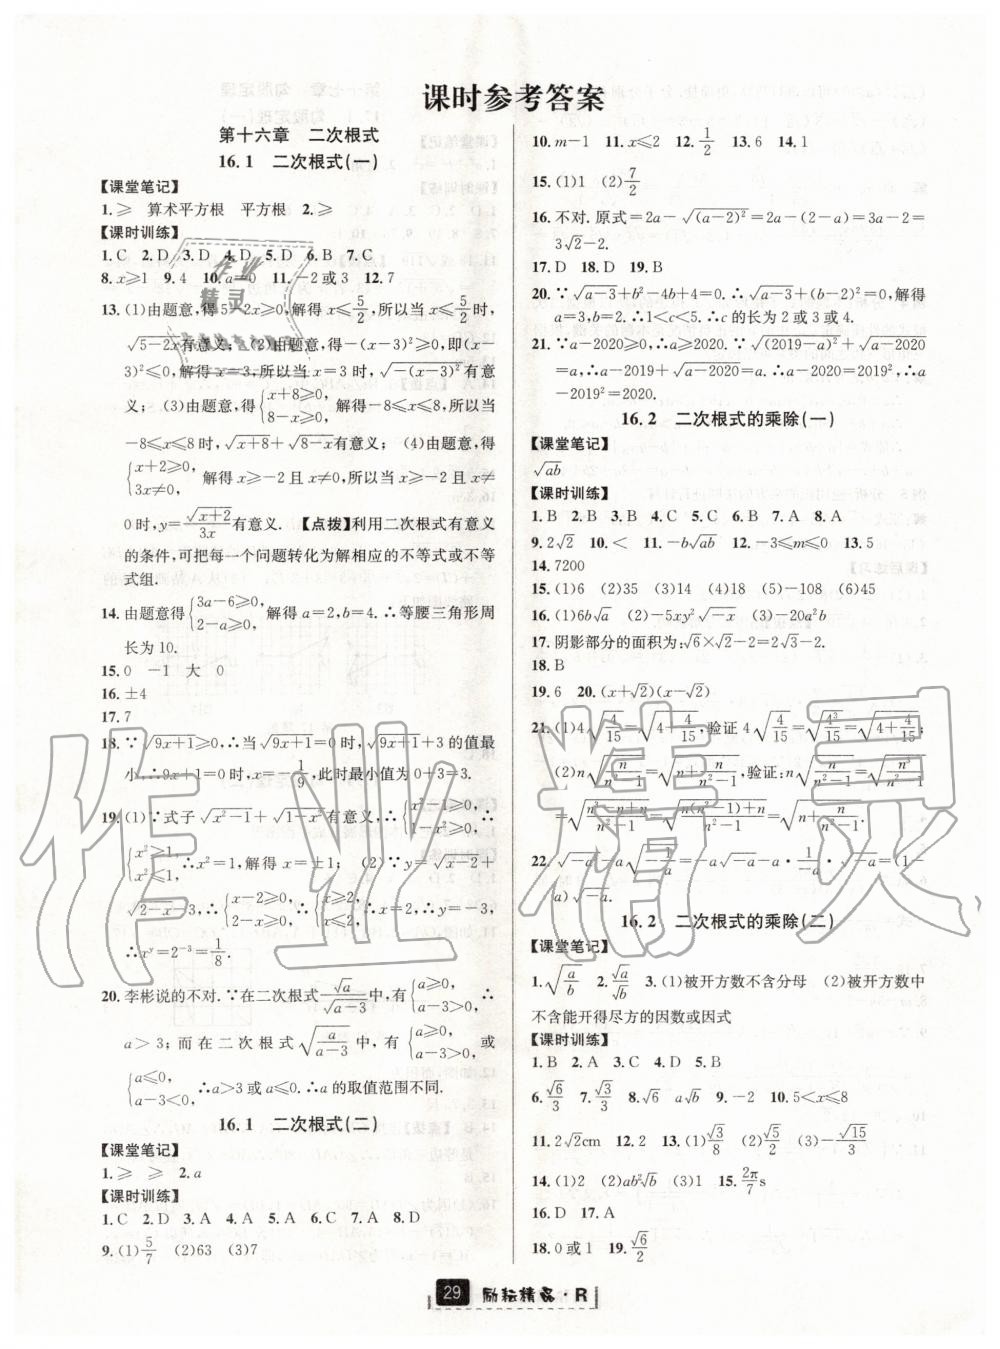 课时参考答案
第十六章 二次根式
16.1 二次根式(一)
【课堂笔记】
1.≥ 算术平方根 平方根 2.≥
【课时训练】
1.C 2.D 3.D 4.D 5.D 6.B 7.C
8.x≥1 9.4 10.a=0 11.-2或3 12.7
13.(1)由题意,得5-2x≥0,解得 x≤5/2,所以当 x≤5/2时,
√(5-2x)有意义;(2)由题意,得-(x-3)²≥0,即(x-
3)²≤0,解得 x=3,所以当 x=3时,√(-(x-3)²)有意
义;(3)由题意,得{x+8≥0, 8-x≥0,解得-8≤x≤8,所以当
-8≤x≤8时,√(x+8)+√(8-x)有意义;(4)由题意,得
{x+2≥0, 3x≠0,解得 x≥-2且 x≠0,所以当 x≥-2且 x≠
0时,y=√(x+2)/3x有意义. 【点拨】利用二次根式有意义
的条件,可把每一个问题转化为解相应的不等式或不等
式组.
14.由题意得{3a-6≥0, 2-a≥0,解得 a=2,b=4.∴等腰三角形周
长为10.
15.0 -1 大 0
16.±4
17.7
18.∵√(9x+1)≥0,∴当√(9x+1)=0时,√(9x+1)+3的值最
小,∴9x+1=0,∴x=-1/9,此时最小值为0+3=3.
19.(1)∵式子√(x²-1)+√(1-x²)有意义,∴{x²-1≥0, 1-x²≥0,∴
{x²≥1, x²≤1,∴x²=1,解得 x=±1; (2)∵y=√(x-2)+
√(2-x)-3,∴{x-2≥0, 2-x≥0,∴{x≥2, x≤2,∴x=2,∴y=-3,
∴xʸ=2⁻³=1/8.
20.李彬说的不对.∵在二次根式√a/√(a-3)中,有{a≥0, a-3>0,∴
a>3;而在二次根式√(a/(a-3))中,有{a≥0, a-3>0,或
{a≤0, a-3<0,∴a>3或a≤0.∴a的取值范围不同.
16.1 二次根式(二)
【课堂笔记】
1.≥ ≥ 2.a
【课时训练】
1.C 2.D 3.A 4.A 5.A 6.C 7.A 8.D
9.(1)5/7 (2)63 (3)7
10.m-1 11.x≤2 12.1/2 13.6 14.1
15.(1)1 (2)7/2
16.不对.原式=2a-√((a-2)²)=2a-(2-a)=3a-2=
3√2-2.
17.D 18.D 19.B
20.∵√(a-3)+b²-4b+4=0.∴√(a-3)+(b-2)²=0,解得
a=3,b=2.∴1<c<5.∴c的长为2或3或4.
21.∵a-2020≥0,∴a≥2020.∵√((2019-a)²)+√(a-2020)
=a,∴a-2019+√(a-2020)=a.∴a-2020=2019²,∴
a-2019²=2020.
16.2 二次根式的乘除(一)
【课堂笔记】
√ab
【课时训练】
1.B 2.B 3.B 4.C 5.C 6.B 7.A 8.A
9.2√2 10.< 11.-b√ab 12.-3≤m≤0 13.5
14.7200
15.(1)6 (2)35 (3)14 (4)18 (5)-108 (6)45
16.(1)6b√a (2)-5xy²√-x (3)-20a²b
17.阴影部分的面积为:√6×√2-2=2√3-2.
18.B
19.6 20.(x+√2)(x-√2)
21.(1)4√(4/15)=√(4+4/15),验证4√(4/15)=√(4³/15)=√(4+4/15);
(2)n√(n/(n²-1))=√(n+n/(n²-1)),验证:n√(n/(n²-1))=√(n³/(n²-1))
=√((n³-n+n)/(n²-1))=√((n(n²-1)+n)/(n²-1))=√(n+n/(n²-1))
22.√(-a³)-a√(-1/a)=-a√-a-a·1/-a·√-a=(1-
a)√-a.
16.2 二次根式的乘除(二)
【课堂笔记】
1.√(a/b) 2.√a/√b 3.(1)被开方数不含分母 (2)被开方数中
不含能开得尽方的因数或因式
【课时训练】
1.B 2.A 3.C 4.D 5.B
6.√6/3 7.√3/3 8.√6 a√b 9.-2 10.5<x≤8
11.2√2cm 12.2 13.(1)√3/8 (2)√5/2 (3)-√15/3
14.(1)√2 (2)ab²√b (3)1 15.2π/7 s
16.D 17.A
18.0或1 19.√6/2
29 励耘精品·R
作业精灵
作业精灵